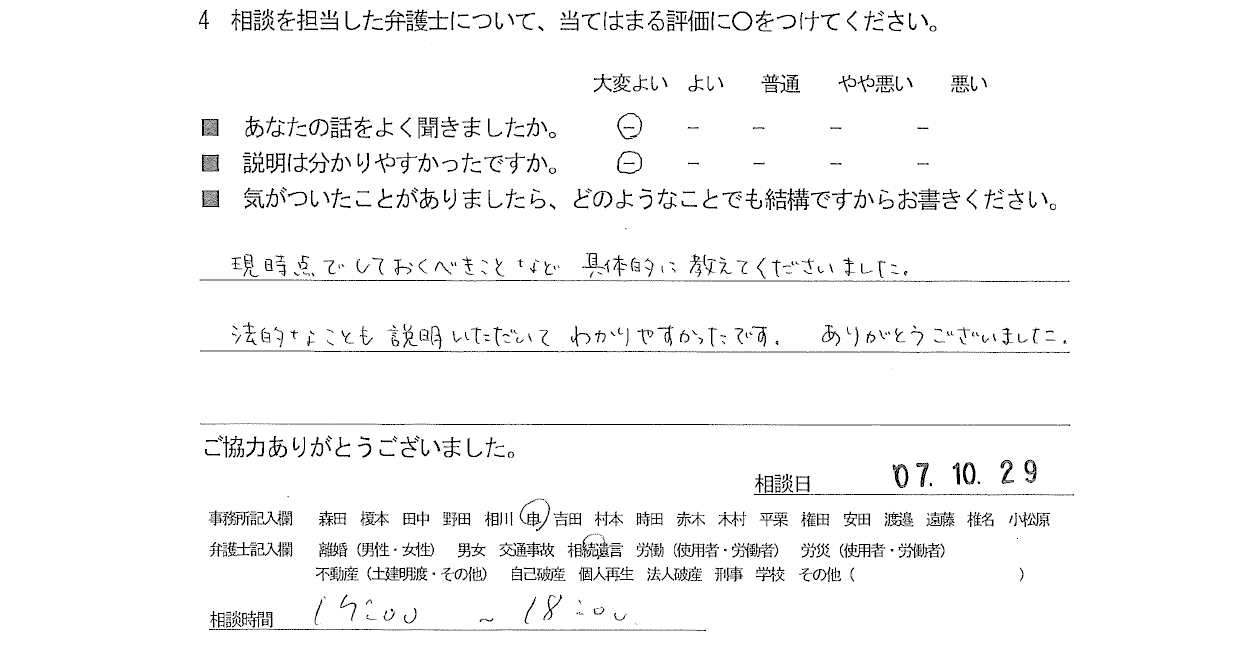 4 相談を担当した弁護士について、当てはまる評価に〇をつけてください。
大変よい よい 普通 やや悪い 悪い
■ あなたの話をよく聞きましたか。 − − − − −
■ 説明は分かりやすかったですか。 − − − − −
■ 気がついたことがありましたら、どのようなことでも結構ですからお書きください。
現時点でしておくべきことなど 具体的に教えてくださいました。
法的なことも説明いただいて わかりやすかったです。 ありがとうございました。
ご協力ありがとうございました。
相談日 '07.10.29
事務所記入欄 森田 榎本 田中 野田 相川 申 吉田 村本 時田 赤木 木村 平栗 権田 安田 渡邉 遠藤 椎名 小松原
弁護士記入欄 離婚（男性・女性） 男女 交通事故 相続遺言 労働（使用者・労働者） 労災（使用者・労働者）
不動産（土建明渡・その他） 自己破産 個人再生 法人破産 刑事 学校 その他（ ）
相談時間 17:00 ~ 18:00